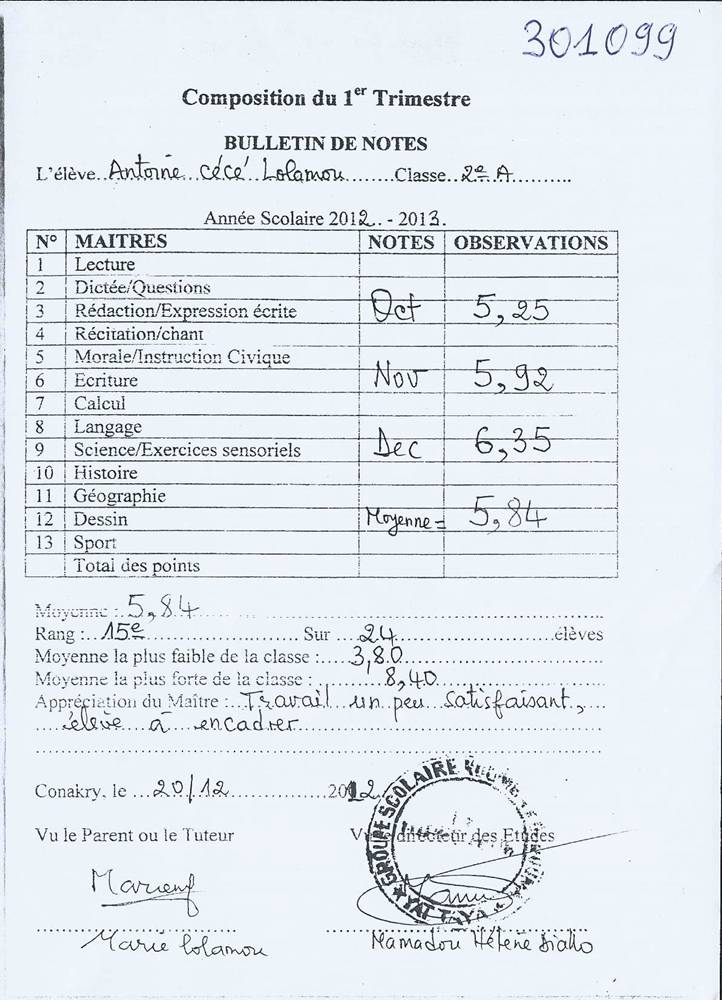 301099
Composition du 1er Trimestre
BULLETIN DE NOTES
L'élève..Antoine..cécé..Lolamou........Classe..2e A..........
Année Scolaire 2012..- 2013.
N° MAITRES NOTES OBSERVATIONS
1 Lecture
2 Dictée/Questions
3 Rédaction/Expression écrite Oct 5,25
4 Récitation/chant
5 Morale/Instruction Civique
6 Ecriture Nov 5,92
7 Calcul
8 Langage
9 Science/Exercices sensoriels Dec 6,35
10 Histoire
11 Géographie
12 Dessin Moyenne = 5,84
13 Sport
Total des points
Moyenne :..5,84
Rang :..15e............................ Sur ....24...............................élèves
Moyenne la plus faible de la classe :.....3,80
Moyenne la plus forte de la classe :..........8,40
Appréciation du Maître :..Travail un peu satisfaisant,
élève à encadrer
Conakry, le ...20/12..................2012
Vu le Parent ou le Tuteur Vu le directeur des Etudes
GROUPE SCOLAIRE
YATTAYA
Marie Lolamou Mamadou Hélène Diallo